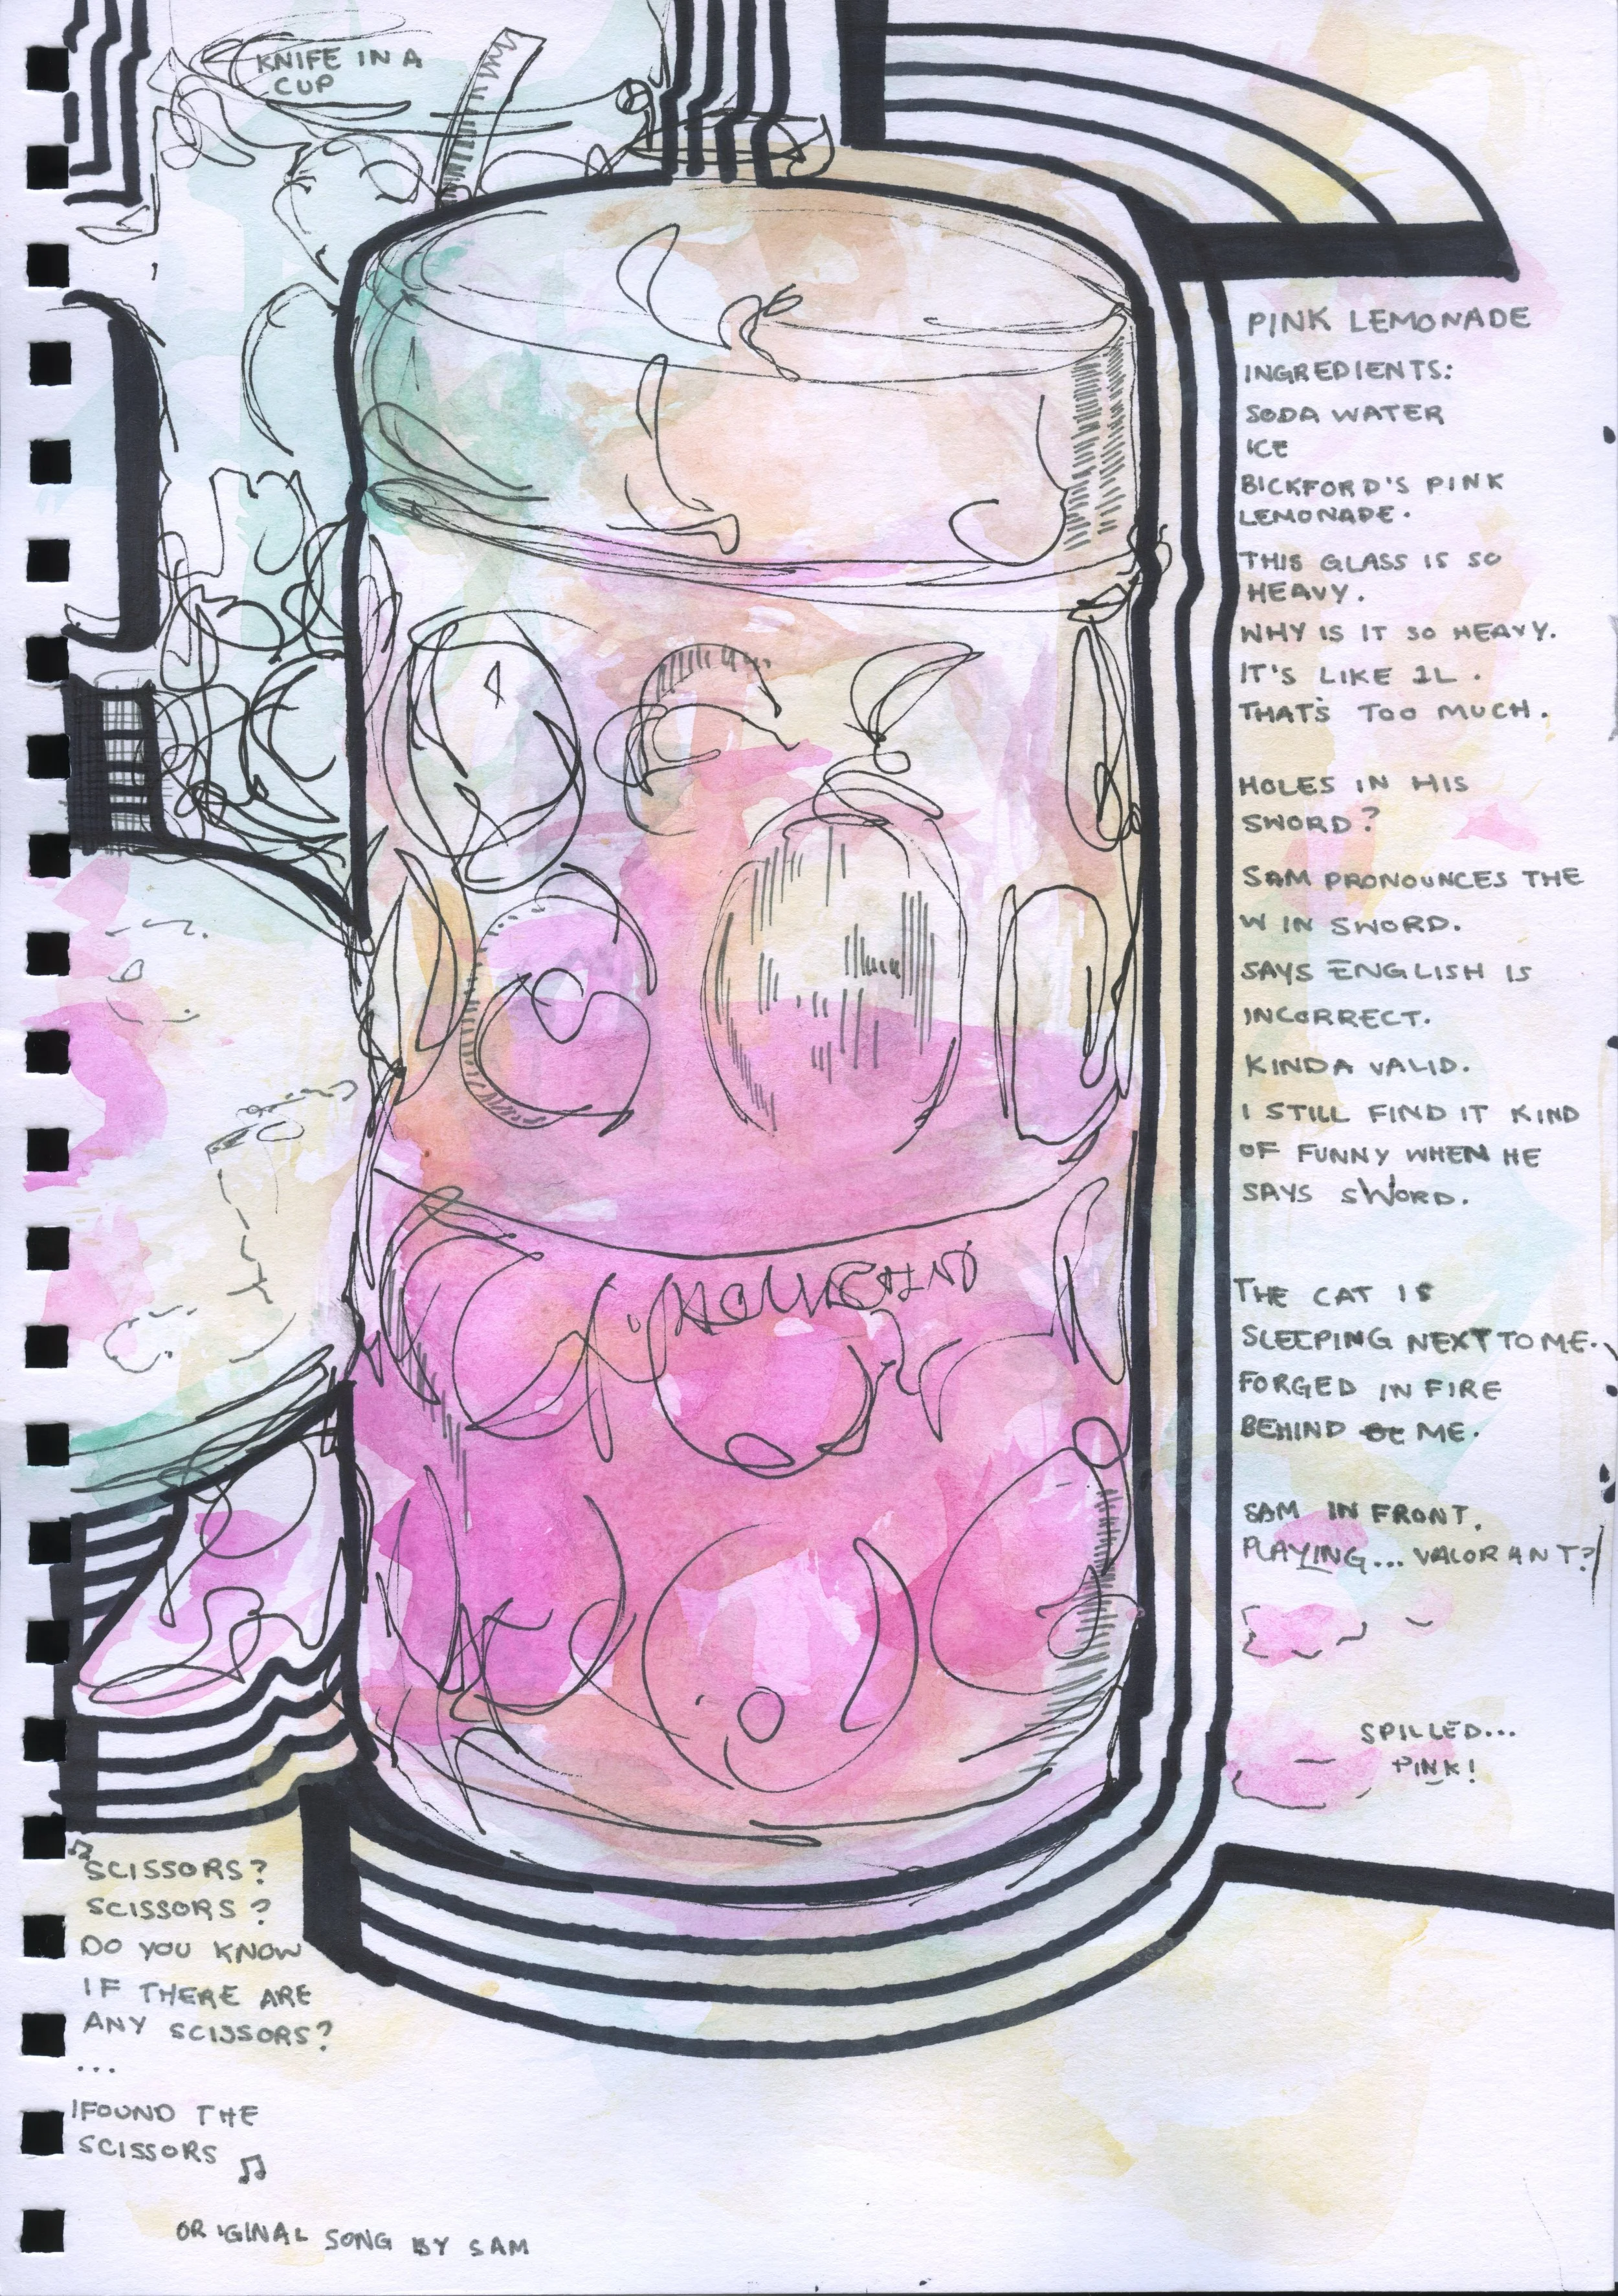 KNIFE IN A
CUP
PINK LEMONADE
INGREDIENTS:
SODA WATER
ICE
BICKFORD'S PINK
LEMONADE.
THIS GLASS IS SO
HEAVY.
WHY IS IT SO HEAVY.
IT'S LIKE 1L.
THAT'S TOO MUCH.
HOLES IN HIS
SWORD?
SAM PRONOUNCES THE
W IN SWORD.
SAYS ENGLISH IS
INCORRECT.
KINDA VALID.
I STILL FIND IT KIND
OF FUNNY WHEN HE
SAYS SWORD.
THE CAT IS
SLEEPING NEXT TO ME.
FORGED IN FIRE
BEHIND ME.
SAM IN FRONT.
PLAYING... VALORANT?
SPILLED...
PINK!
♫
SCISSORS?
SCISSORS?
DO YOU KNOW
IF THERE ARE
ANY SCISSORS?
...
I FOUND THE
SCISSORS ♫
ORIGINAL SONG BY SAM